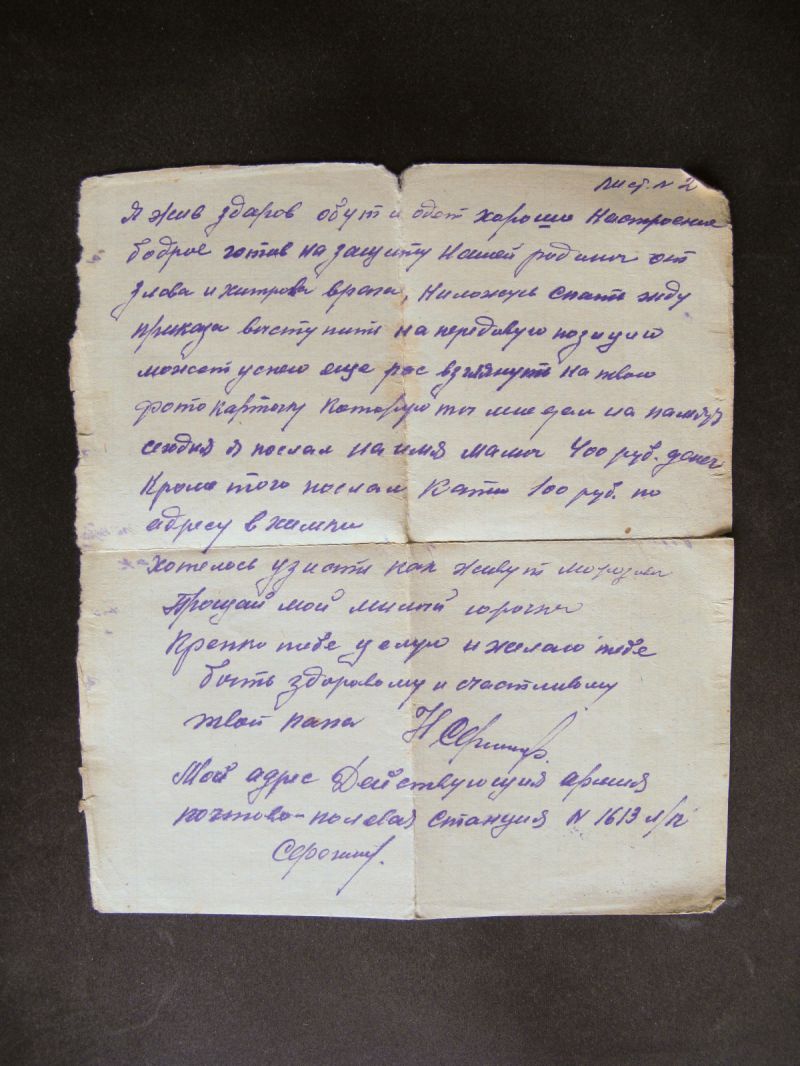 Лист. N 2
Я жив здаров обут и одет хорошо Настроение
бодрое готов на защиту Нашей родины от
злова и хитрова врага, Ниложусь спать жду
приказа выступить на передовую позицию
может успею еще рас взглянуть на твою
фотокарточку Которую ты мне дал на память
сегодня я послал на имя мамы 400 руб. денег
Кроме того послал Кати 100 руб. по
адресу в химки
Хотелось узнать как живут
Прощай мой милый юрочка
Крепко тебе целую и желаю тебе
быть здоровому и счастливому
твой папа Н
Мой адрес Действующия армия
почтово-полевая станция N 1613 л/п